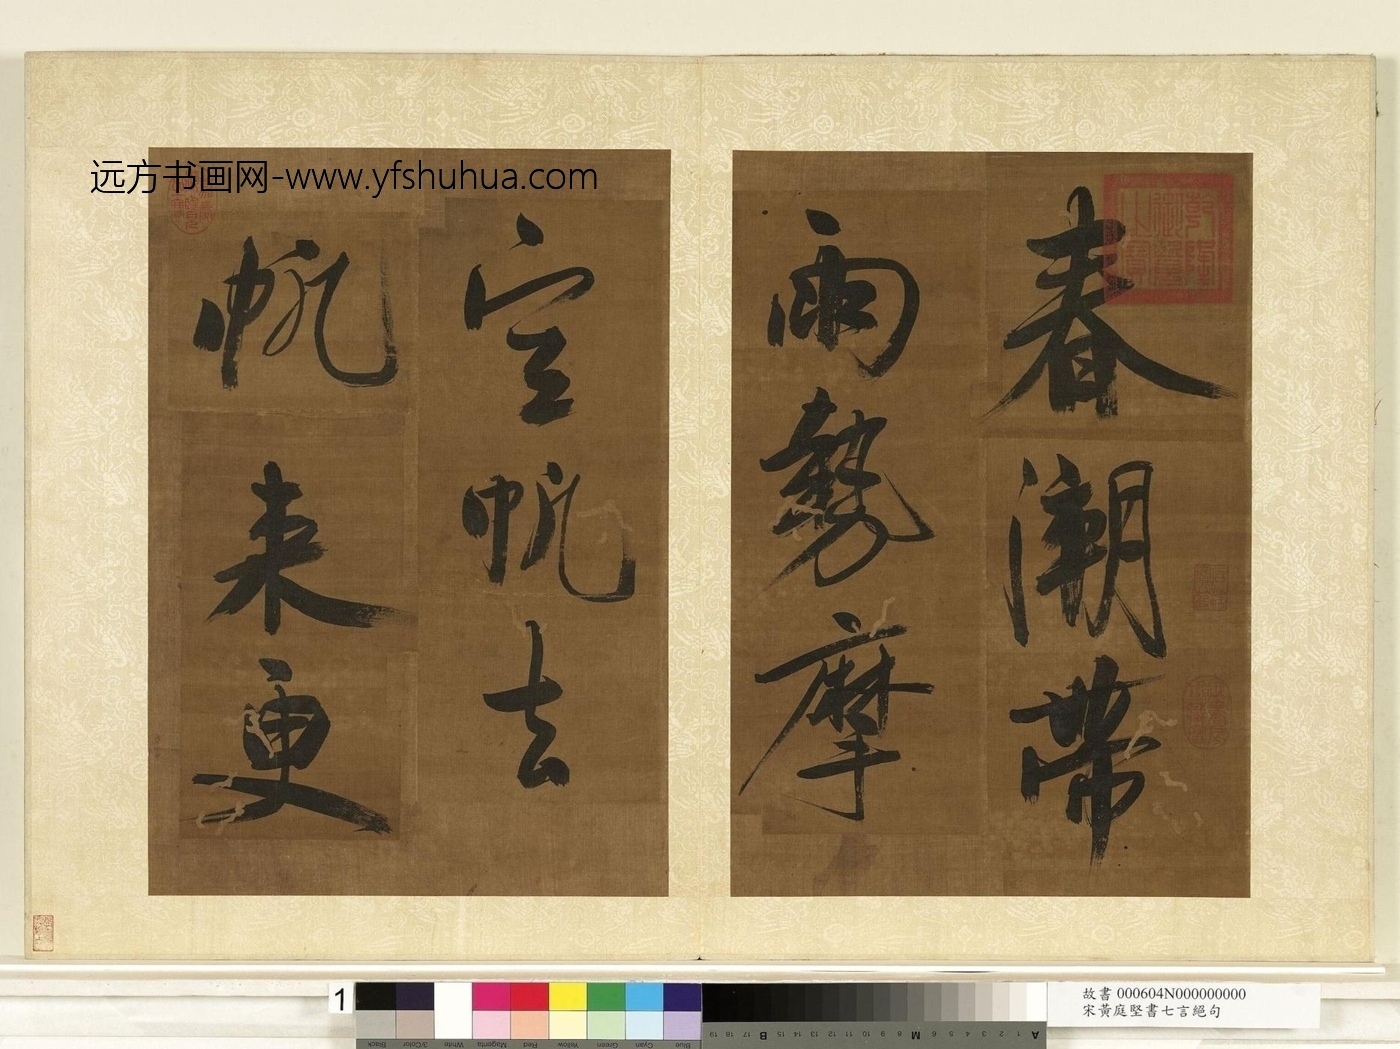 春潮帶
雨勢摩
空帆去
帆来更
远方书画网-www.yfshuhua.com
1
Black
3/Color
White
Magenta
Red
Yellow
Green
Cyan
Blue
19 18 17 16 15 14 13 12 11 10 9 8 7 6 5 4 3 2 1
B M A
故書 000604N000000000
宋黃庭堅書七言絕句